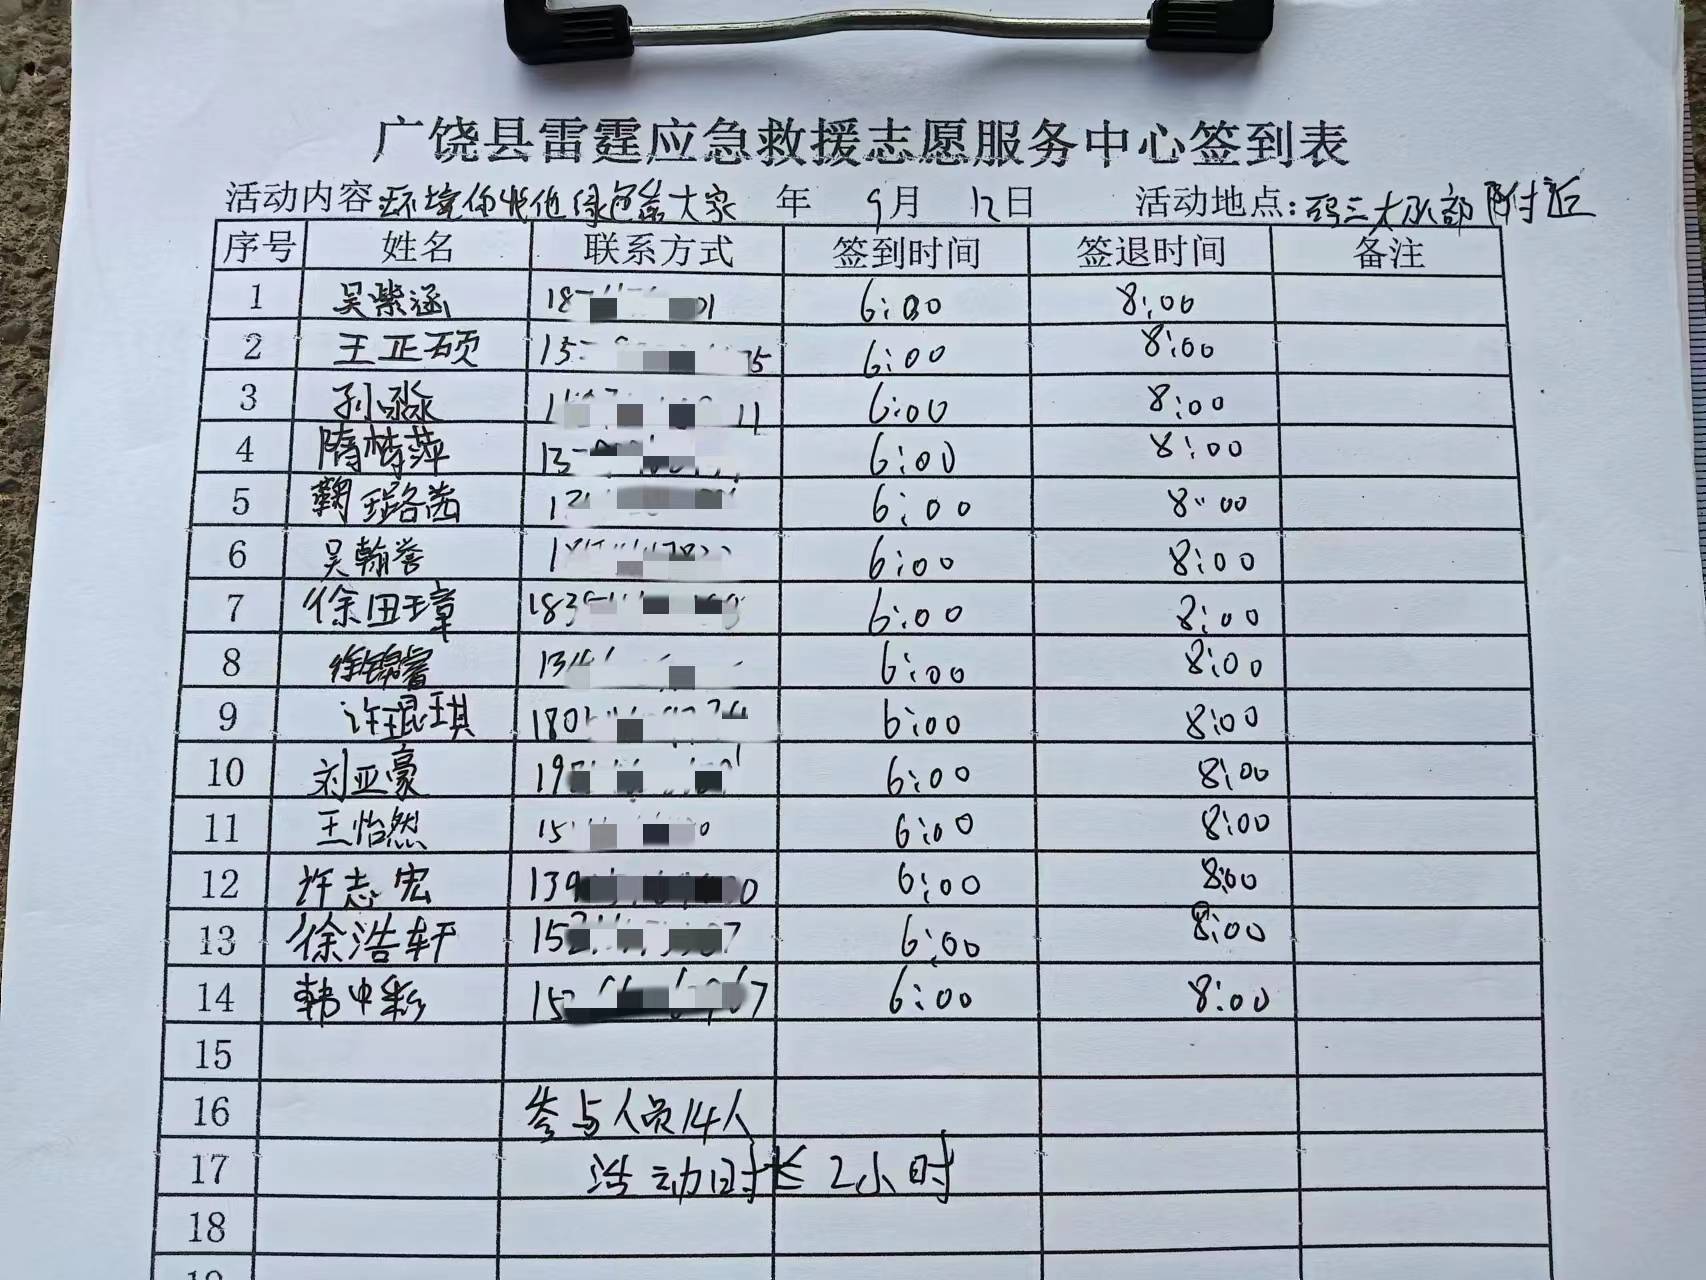 广饶县雷霆应急救援志愿服务中心签到表
活动内容 环境 大家 年 9月 12日 活动地点: 附近
序号 姓名 联系方式 签到时间 签退时间 备注
1 吴紫涵 18 01 6:00 8:00
2 王正硕 15 5 6:00 8:00
3 孙淼 1 11 6:00 8:00
4 隋梦萍 13 6:00 8:00
5 鞠璐茜 6:00 8:00
6 吴翰誉 6:00 8:00
7 徐田璋 183 6:00 8:00
8 徐锦睿 6:00 8:00
9 许琨琪 180 6:00 8:00
10 刘亚豪 19 6:00 8:00
11 王怡然 15 0 6:00 8:00
12 许志宏 139 0 6:00 8:00
13 徐浩轩 152 7 6:00 8:00
14 韩中彩 15 67 6:00 8:00
15
16 参与人员14人
17 活动时长2小时
18
19